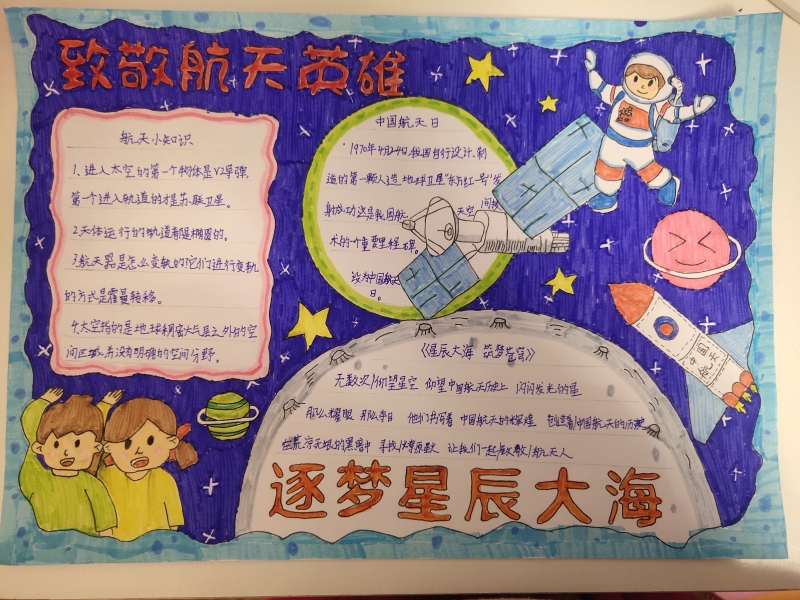 致敬航天英雄
航天小知识
1、进入太空的第一个物体是V2导弹
第一个进入轨道的才是苏联卫星。
2.天体运行的轨道都是椭圆的。
3.航天器是怎么变轨的?它们进行变轨
的方式是霍曼转移。
4.太空指的是地球稠密大气层之外的空
间区域,并没有明确的空间分野。
中国航天日
1970年4月24日,我国自行设计、制
造的第一颗人造地球卫星"东方红一号"发
射成功这是我国航 天空间技
术的一个重要里程碑。
设为中国航天
日。
《星辰大海 筑梦苍穹》
无数次 仰望星空 仰望中国航天历史上 闪闪发光的星
那么耀眼 那么夺目 他们书写着 中国航天的辉煌 创造着中国航天的历史
在 的黑暗中 寻找 让我们一起致敬航天人
逐梦星辰大海
中国航天